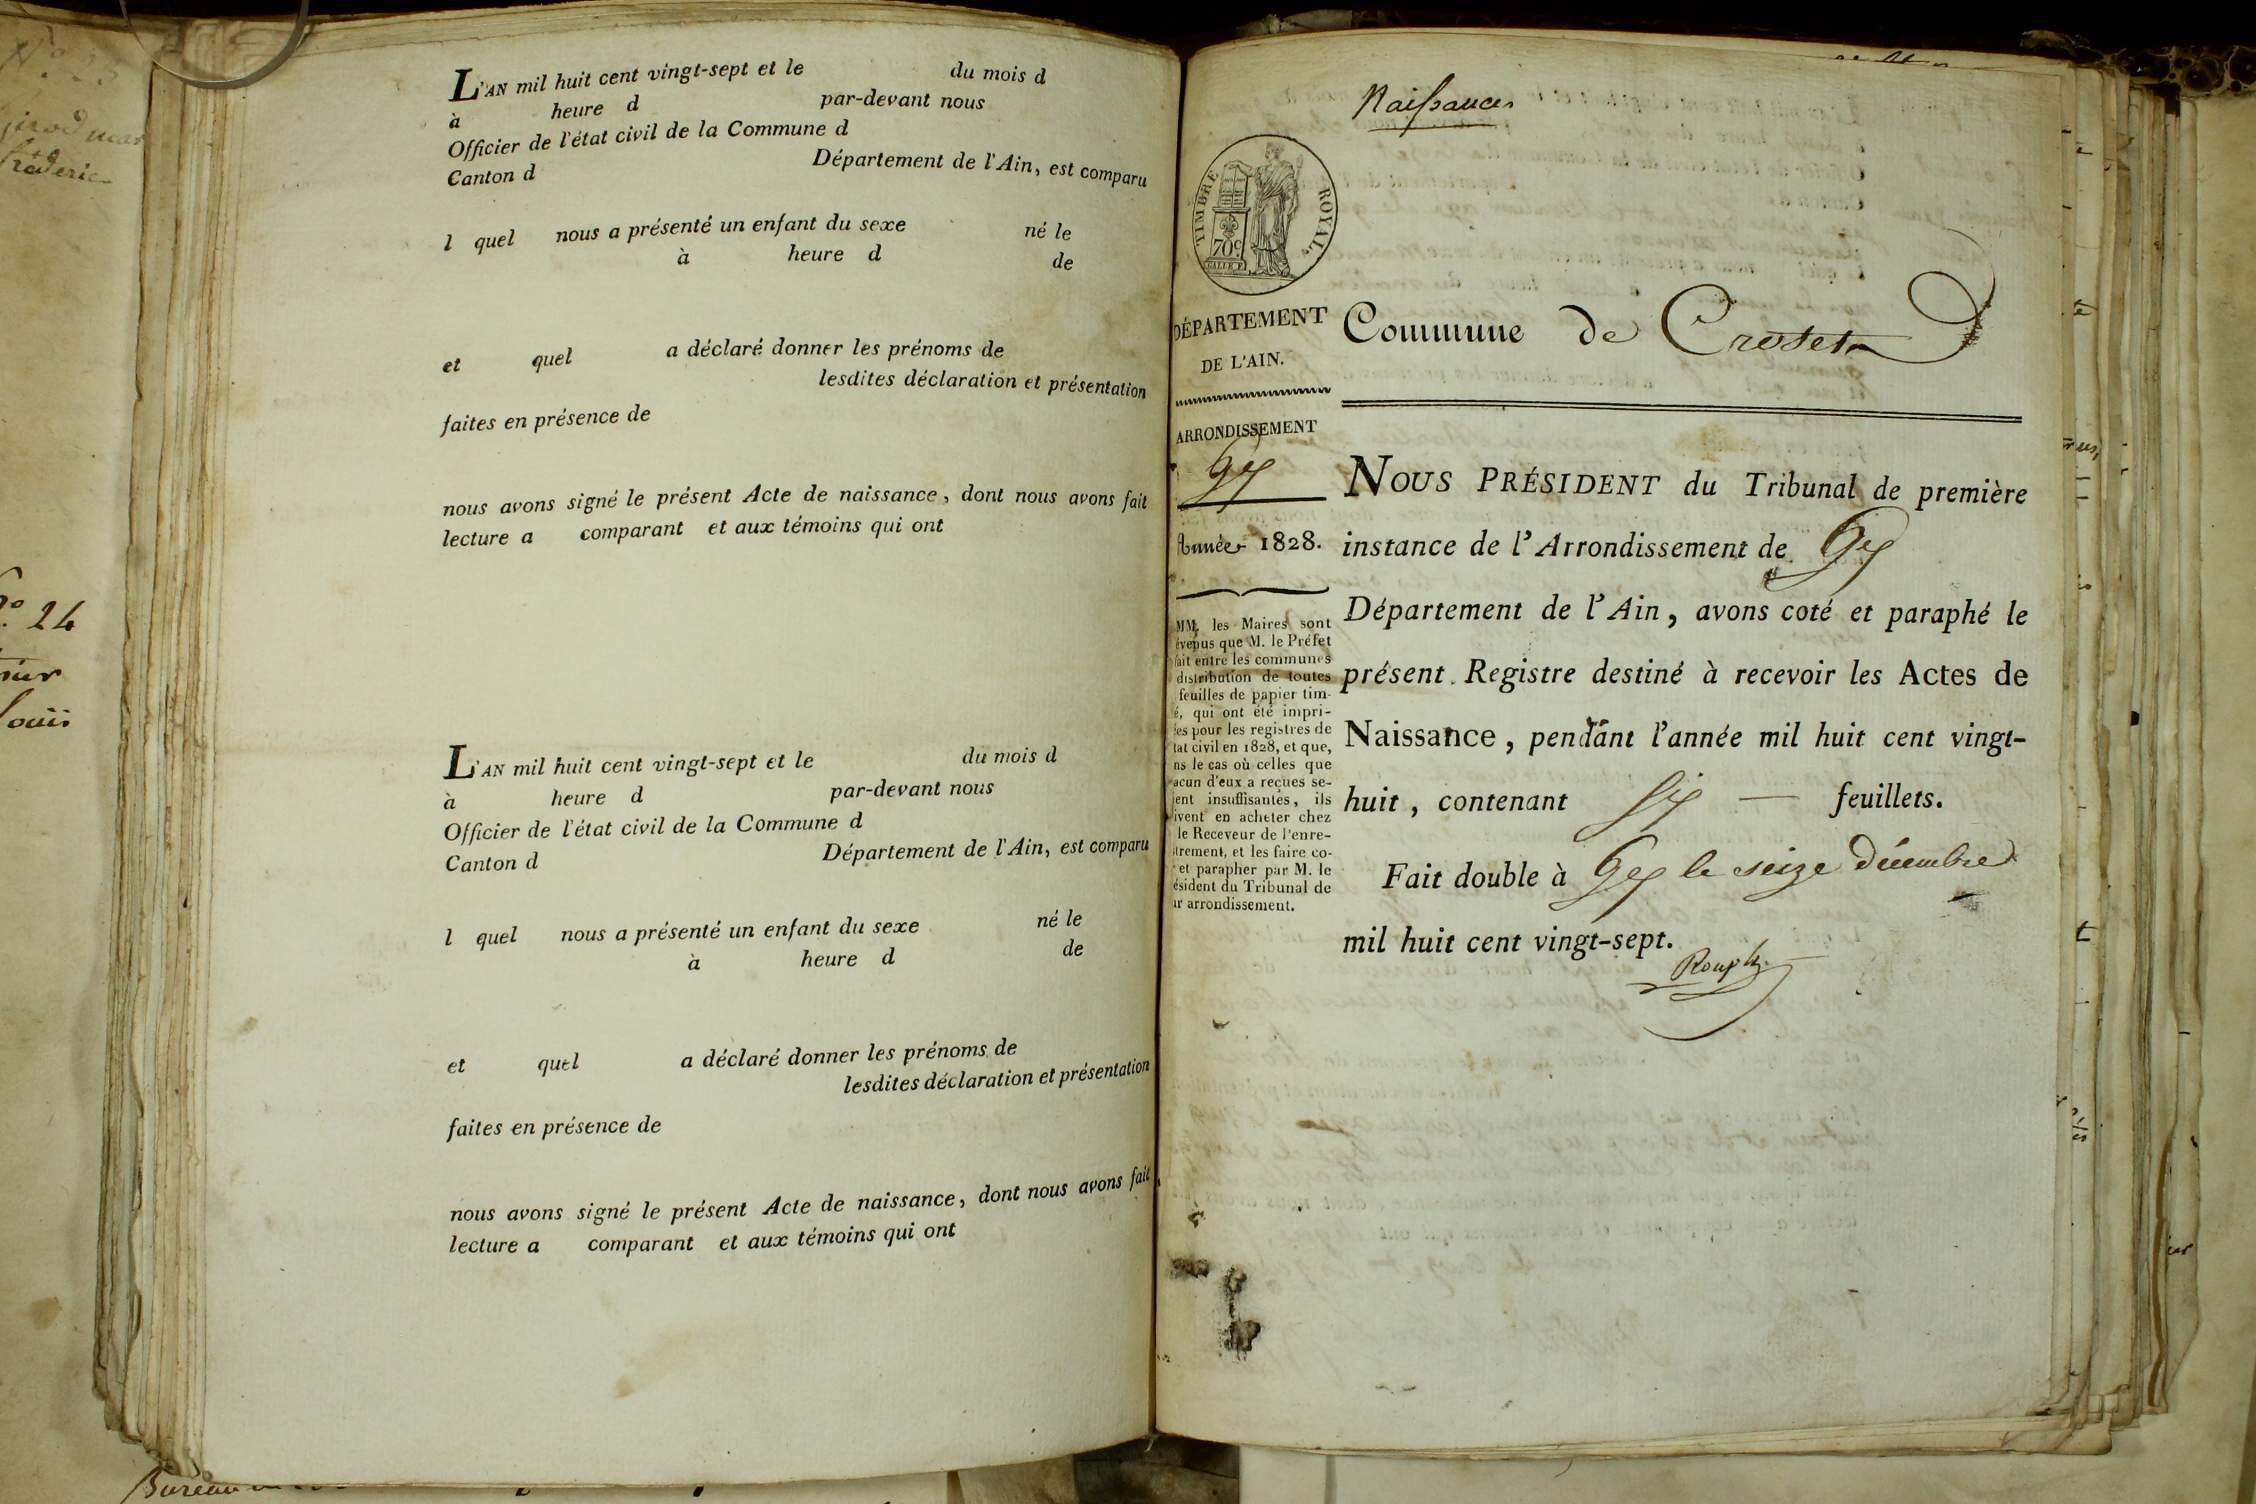 L'AN mil huit cent vingt-sept et le du mois d
à heure d par-devant nous
Officier de l'état civil de la Commune d
Canton d Département de l'Ain, est comparu
l quel nous a présenté un enfant du sexe né le
à heure d de
et quel a déclaré donner les prénoms de
lesdites déclaration et présentation
faites en présence de
nous avons signé le présent Acte de naissance, dont nous avons fait
lecture a comparant et aux témoins qui ont
L'AN mil huit cent vingt-sept et le du mois d
à heure d par-devant nous
Officier de l'état civil de la Commune d
Canton d Département de l'Ain, est comparu
l quel nous a présenté un enfant du sexe né le
à heure d de
et quel a déclaré donner les prénoms de
lesdites déclaration et présentation
faites en présence de
nous avons signé le présent Acte de naissance, dont nous avons fait
lecture a comparant et aux témoins qui ont
24
Naissances
TIMBRE ROYAL
70c
DÉPARTEMENT
DE L'AIN.
ARRONDISSEMENT
Gex
Année 1828.
MM. les Maires sont
évenus que M. le Préfet
fait entre les communes
distribution de toutes
feuilles de papier tim-
é, qui ont été impri-
ées pour les registres de
tat civil en 1828, et que,
ns le cas où celles que
acun d'eux a reçues se-
ient insuffisantes, ils
ivent en acheter chez
le Receveur de l'enre-
trement, et les faire co-
et parapher par M. le
ésident du Tribunal de
ur arrondissement.
Commune de Crozet
NOUS PRÉSIDENT du Tribunal de première
instance de l'Arrondissement de Gex
Département de l'Ain, avons coté et paraphé le
présent Registre destiné à recevoir les Actes de
Naissance, pendant l'année mil huit cent vingt-
huit, contenant six — feuillets.
Fait double à Gex le seize décembre
mil huit cent vingt-sept.